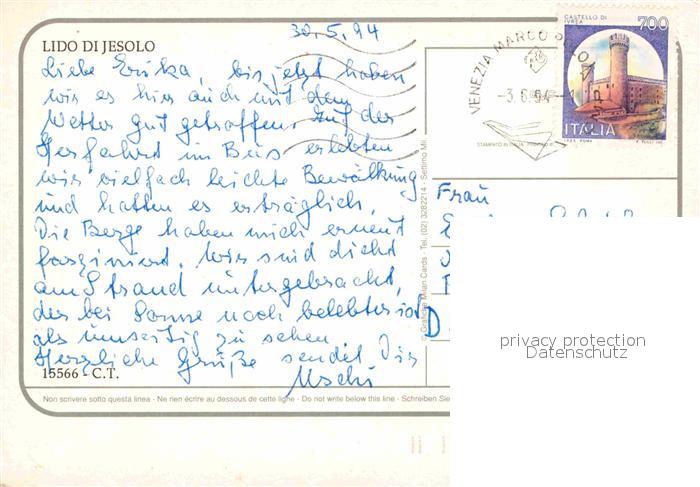 30.5.94
LIDO DI JESOLO
Liebe Erika, bis jetzt haben
wir es hier auch mit dem
Wetter gut getroffen. Auf der
Herfahrt im Bus erlebten
wir vielfach leichte Bewölkung
und hatten es erträglich.
Die Berge haben mich erneut
fasziniert. Wir sind dicht
am Strand untergebracht,
der bei Sonne noch belebter ist
als umseitig zu sehen.
Herzliche Grüße sendet Dir
Uschi
15566 - C.T.
Non scrivere sotto questa linea - Ne rien écrire au dessous de cette ligne - Do not write below this line - Schreiben Sie
© Grafiche Milan Cards - Tel. (02) 3282214 - Settimo Mil
VENEZIA MARCO POLO
-3.6.94
CASTELLO DI
IVREA
700
ITALIA
STAMPATO IN ITALIA
Frau
D
privacy protection
Datenschutz